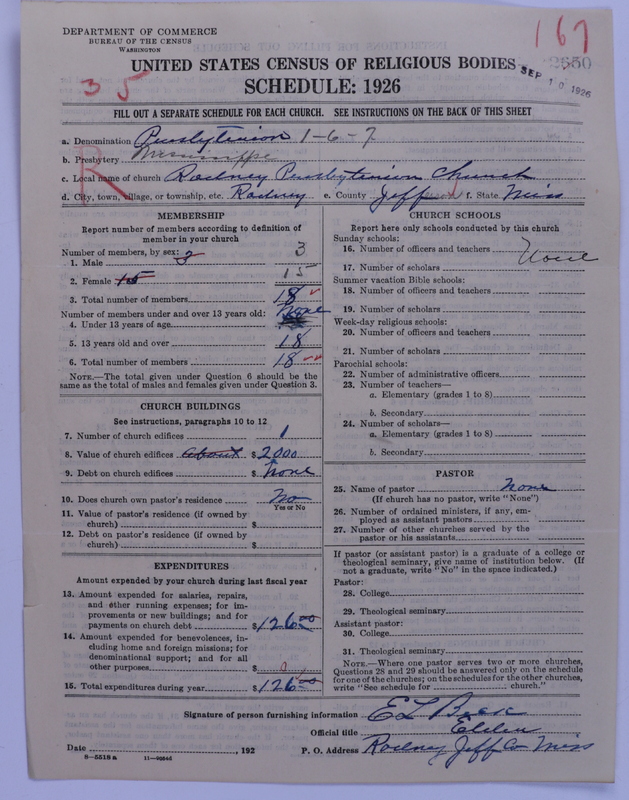 DEPARTMENT OF COMMERCE
BUREAU OF THE CENSUS
WASHINGTON
167
2550
SEP 10 1926
UNITED STATES CENSUS OF RELIGIOUS BODIES
35
SCHEDULE: 1926
FILL OUT A SEPARATE SCHEDULE FOR EACH CHURCH. SEE INSTRUCTIONS ON THE BACK OF THIS SHEET
R
a. Denomination Presbyterian 1-6-7
b. Presbytery Mississippi
c. Local name of church Rodney Presbyterian Church
d. City, town, village, or township, etc. Rodney e. County Jefferson f. State Miss
MEMBERSHIP
Report number of members according to definition of
member in your church
Number of members, by sex:
1. Male 3 3
2. Female 15 15
3. Total number of members 18
Number of members under and over 13 years old:
4. Under 13 years of age None
5. 13 years old and over 18
6. Total number of members 18
NOTE.—The total given under Question 6 should be the
same as the total of males and females given under Question 3.
CHURCH BUILDINGS
See instructions, paragraphs 10 to 12
7. Number of church edifices 1
8. Value of church edifices About $ 2000
9. Debt on church edifices $ None
10. Does church own pastor's residence No
Yes or No
11. Value of pastor's residence (if owned by
church) $
12. Debt on pastor's residence (if owned by
church) $
EXPENDITURES
Amount expended by your church during last fiscal year
13. Amount expended for salaries, repairs,
and other running expenses; for im-
provements or new buildings; and for
payments on church debt $ 126 00
14. Amount expended for benevolences, in-
cluding home and foreign missions; for
denominational support; and for all
other purposes $ 0
15. Total expenditures during year $ 126 00
CHURCH SCHOOLS
Report here only schools conducted by this church
Sunday schools:
16. Number of officers and teachers None
17. Number of scholars
Summer vacation Bible schools:
18. Number of officers and teachers
19. Number of scholars
Week-day religious schools:
20. Number of officers and teachers
21. Number of scholars
Parochial schools:
22. Number of administrative officers
23. Number of teachers—
a. Elementary (grades 1 to 8)
b. Secondary
24. Number of scholars—
a. Elementary (grades 1 to 8)
b. Secondary
PASTOR
25. Name of pastor None
(If church has no pastor, write "None")
26. Number of ordained ministers, if any, em-
ployed as assistant pastors
27. Number of other churches served by the
pastor or his assistants
If pastor (or assistant pastor) is a graduate of a college or
theological seminary, give name of institution below. (If
not a graduate, write "No" in the space indicated.)
Pastor:
28. College
29. Theological seminary
Assistant pastor:
30. College
31. Theological seminary
NOTE.—Where one pastor serves two or more churches,
Questions 28 and 29 should be answered only on the schedule
for one of the churches; on the schedules for the other churches,
write "See schedule for church."
Signature of person furnishing information E L
Official title Elder
Date , 192 P. O. Address Rodney Jeff Co Miss
8—5518a 11—90546